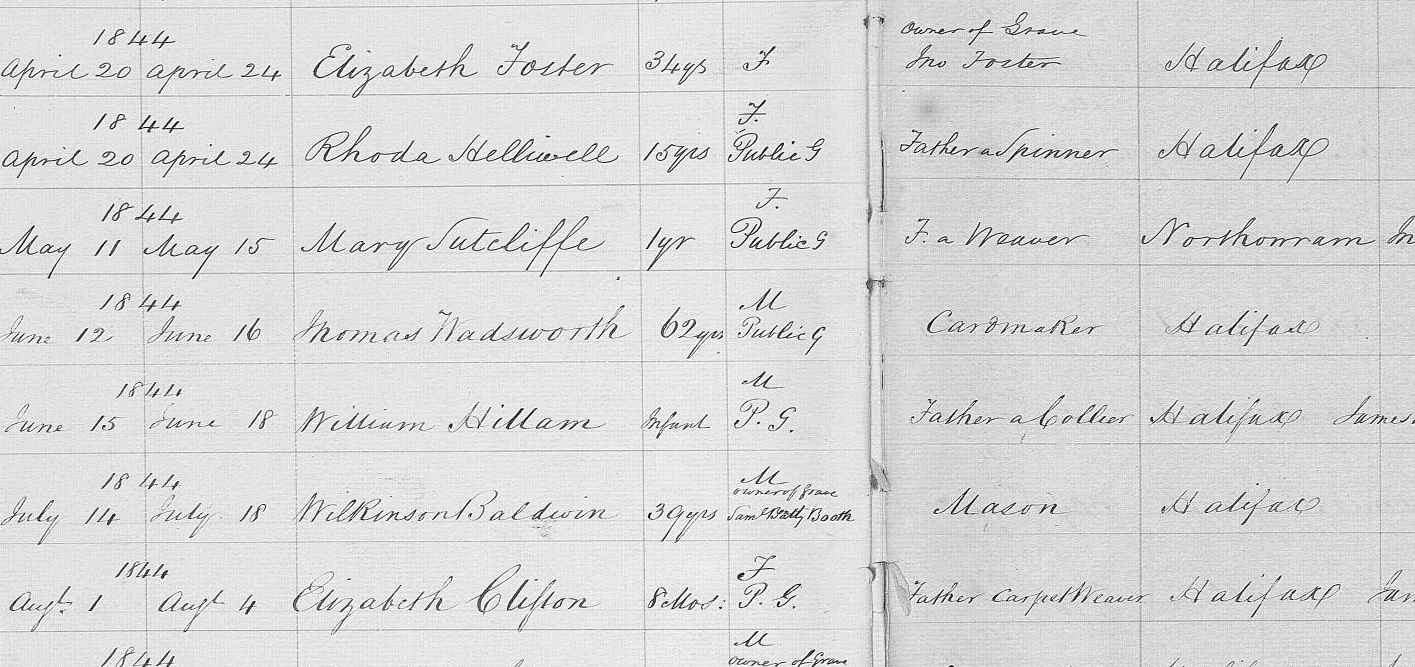 1844 owner of Grave
April 20 April 24 Elizabeth Foster 34yrs F Jno Foster Halifax
1844 F.
April 20 April 24 Rhoda Helliwell 15yrs Public G Father a Spinner Halifax
1844 F.
May 11 May 15 Mary Sutcliffe 1yr Public G F. a Weaver Northowram
1844 M
June 12 June 16 Thomas Wadsworth 62yrs Public G Cardmaker Halifax
1844 M
June 15 June 18 William Hillam Infant P. G. Father a Collier Halifax James
1844 M
owner of Grave
July 14 July 18 Wilkinson Baldwin 39yrs Saml Batty Booth Mason Halifax
1844 F
Augt. 1 Augt 4 Elizabeth Clifton 8 Mos: P. G. Father Carpet Weaver Halifax
1844 M
owner of Grave